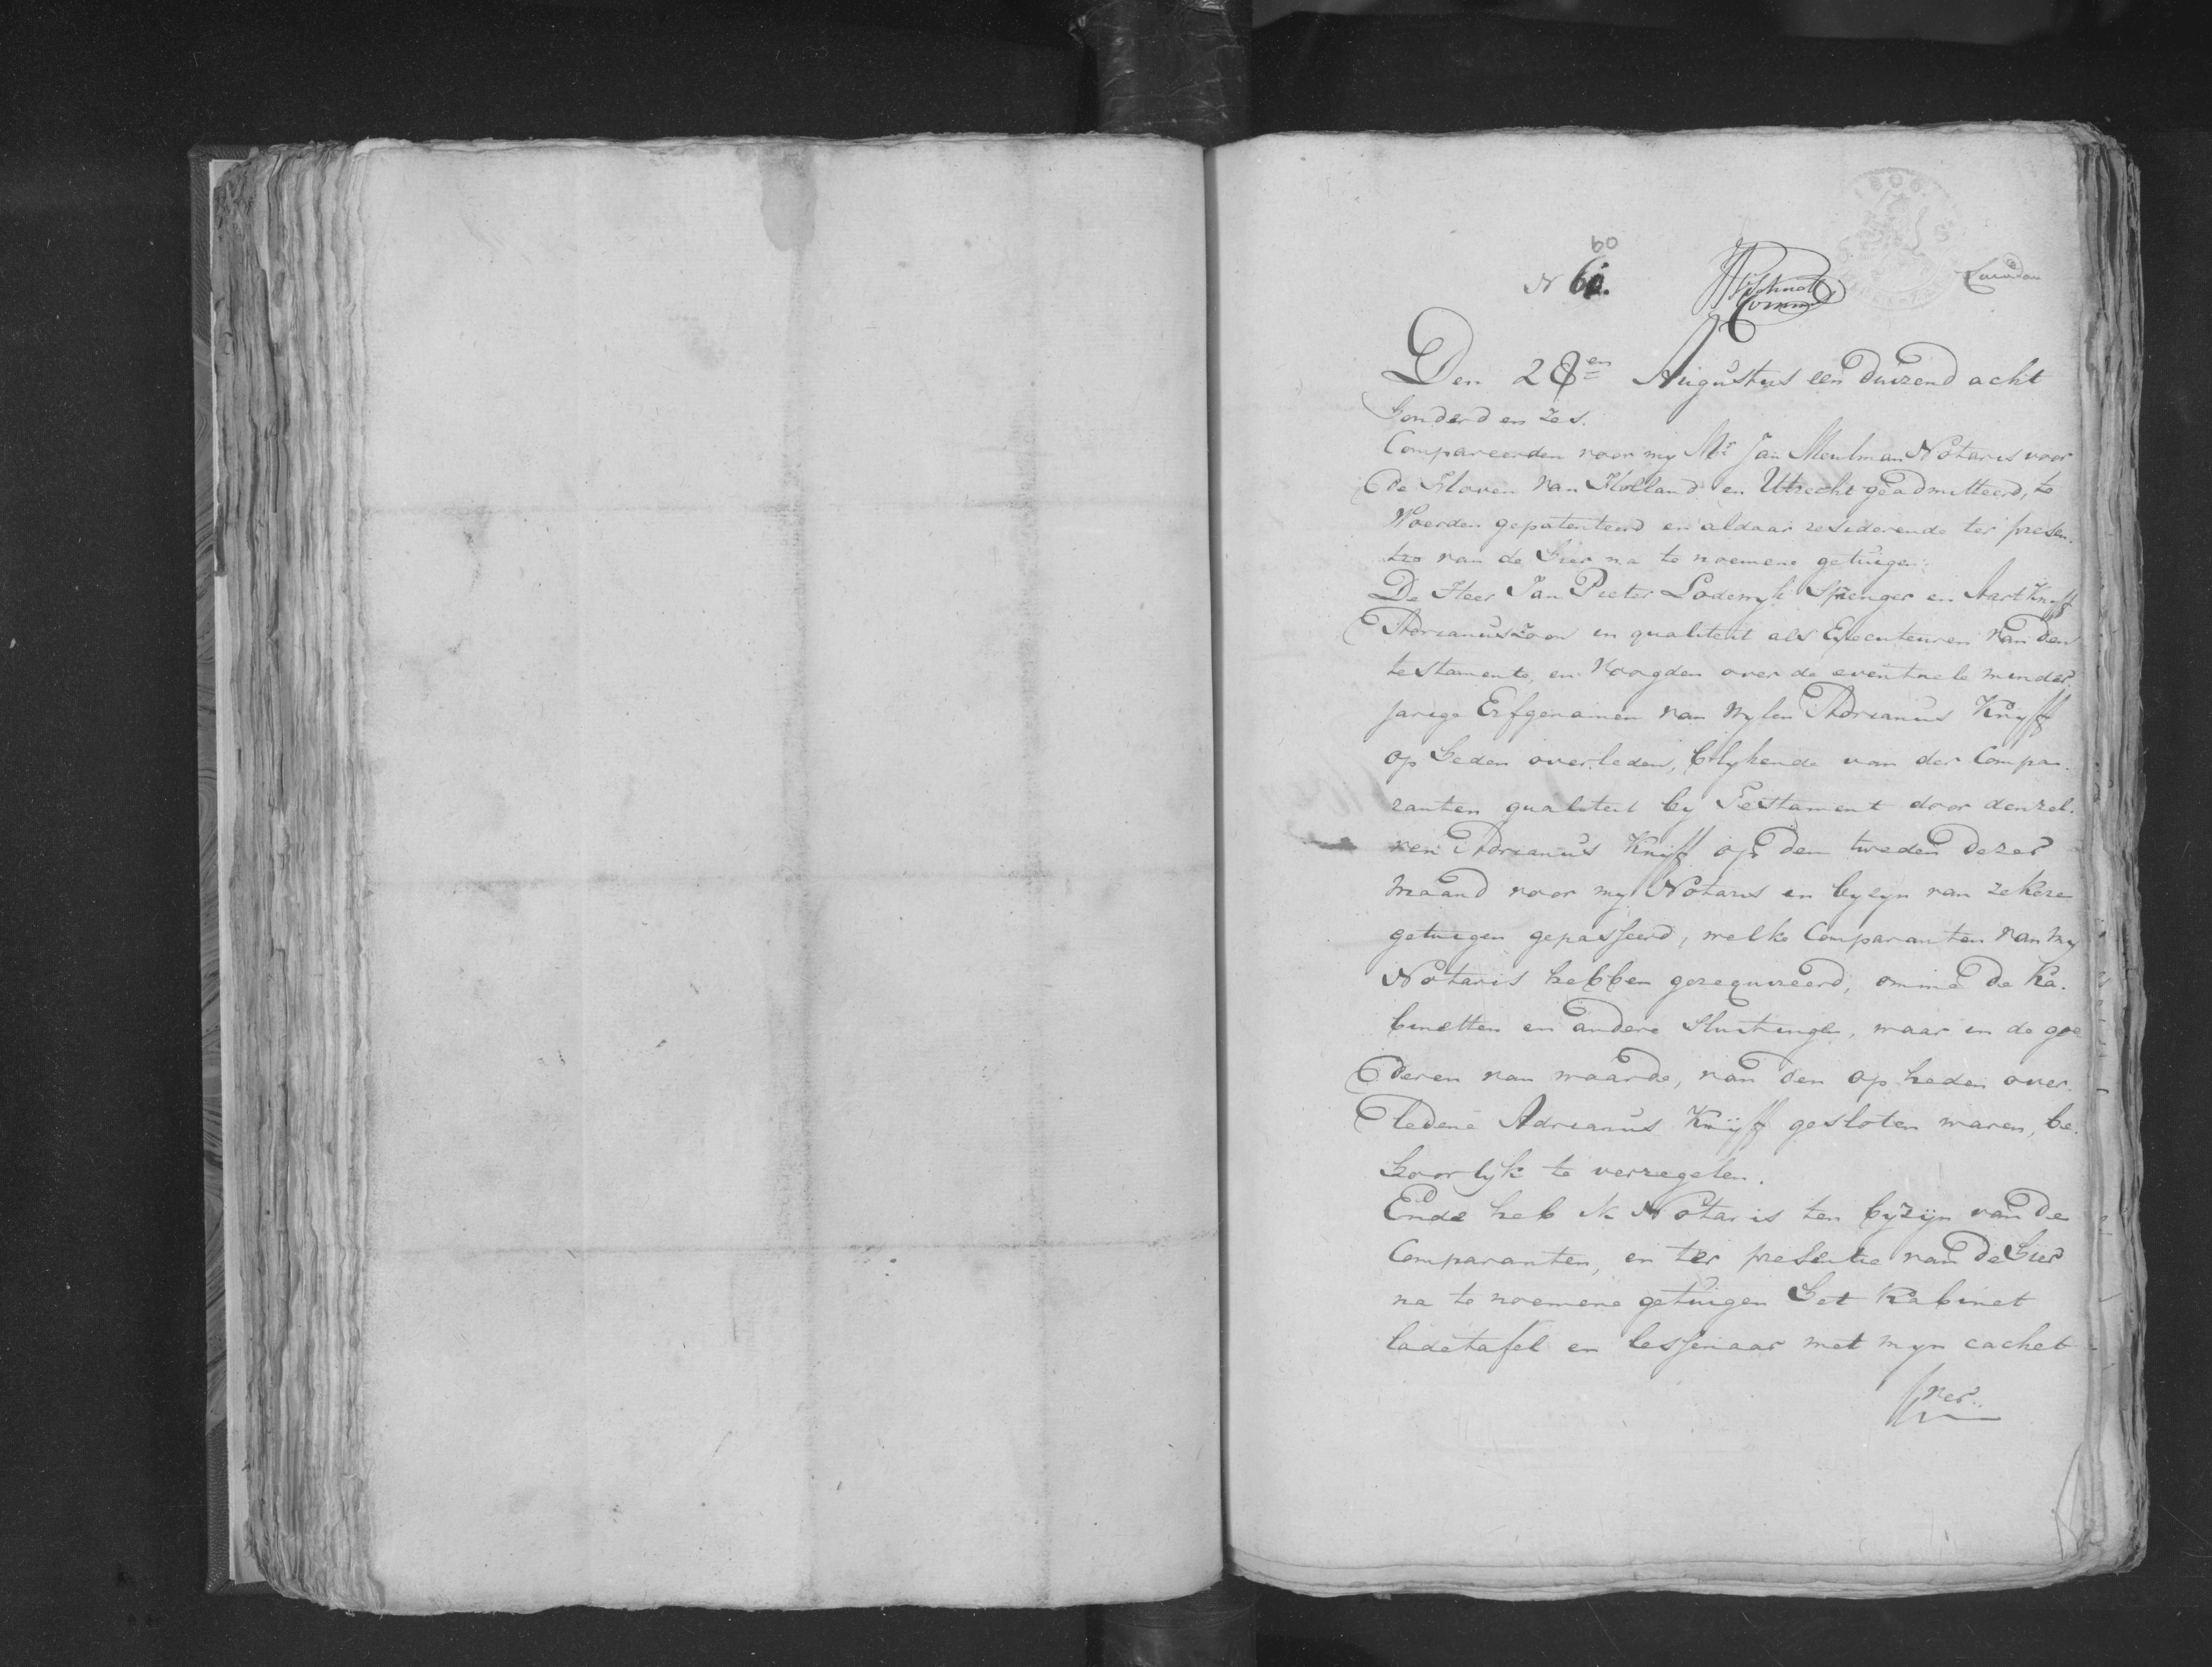 60
N 60.
Den 28en Augustus een duizend acht
honderd en zes.
Compareerden voor my Mr Jan Meulman Notaris voor
de Hoven van Holland en Utrecht geadmitteerd, te
Woerden gepatenteerd en aldaar residerende ter presen-
tie van de hier na te noemene getuigen:
De Heer Jan Pieter Lodewyk Sprenger en Aart Knyff
Adrianuszoon in qualiteit als Executeuren van den
testamente, en voogden over de eventuele minder
jarige Erfgenamen van wylen Adrianus Knyff
op heden overleden, blykende van der Compa-
ranten qualiteit by Testament door denzel-
ven Adrianus Knyff op den tweden dezer
maand voor my Notaris en byzyn van zekere
getuigen gepasseerd, welke Comparanten van my
Notaris hebben gerequireerd, omme de Ka-
binetten en andere sluitingen, waar in de goe
deren van waarde, van den op heden over-
ledene Adrianus Knyff gesloten waren, be-
hoorlyk te verzegelen.
Ende heb ik Notaris ten byzijn van de
Comparanten, en ter presentie van de hier
na te noemene getuigen het Kabinet
ladetafel en lessenaar met myn cachet
ver-